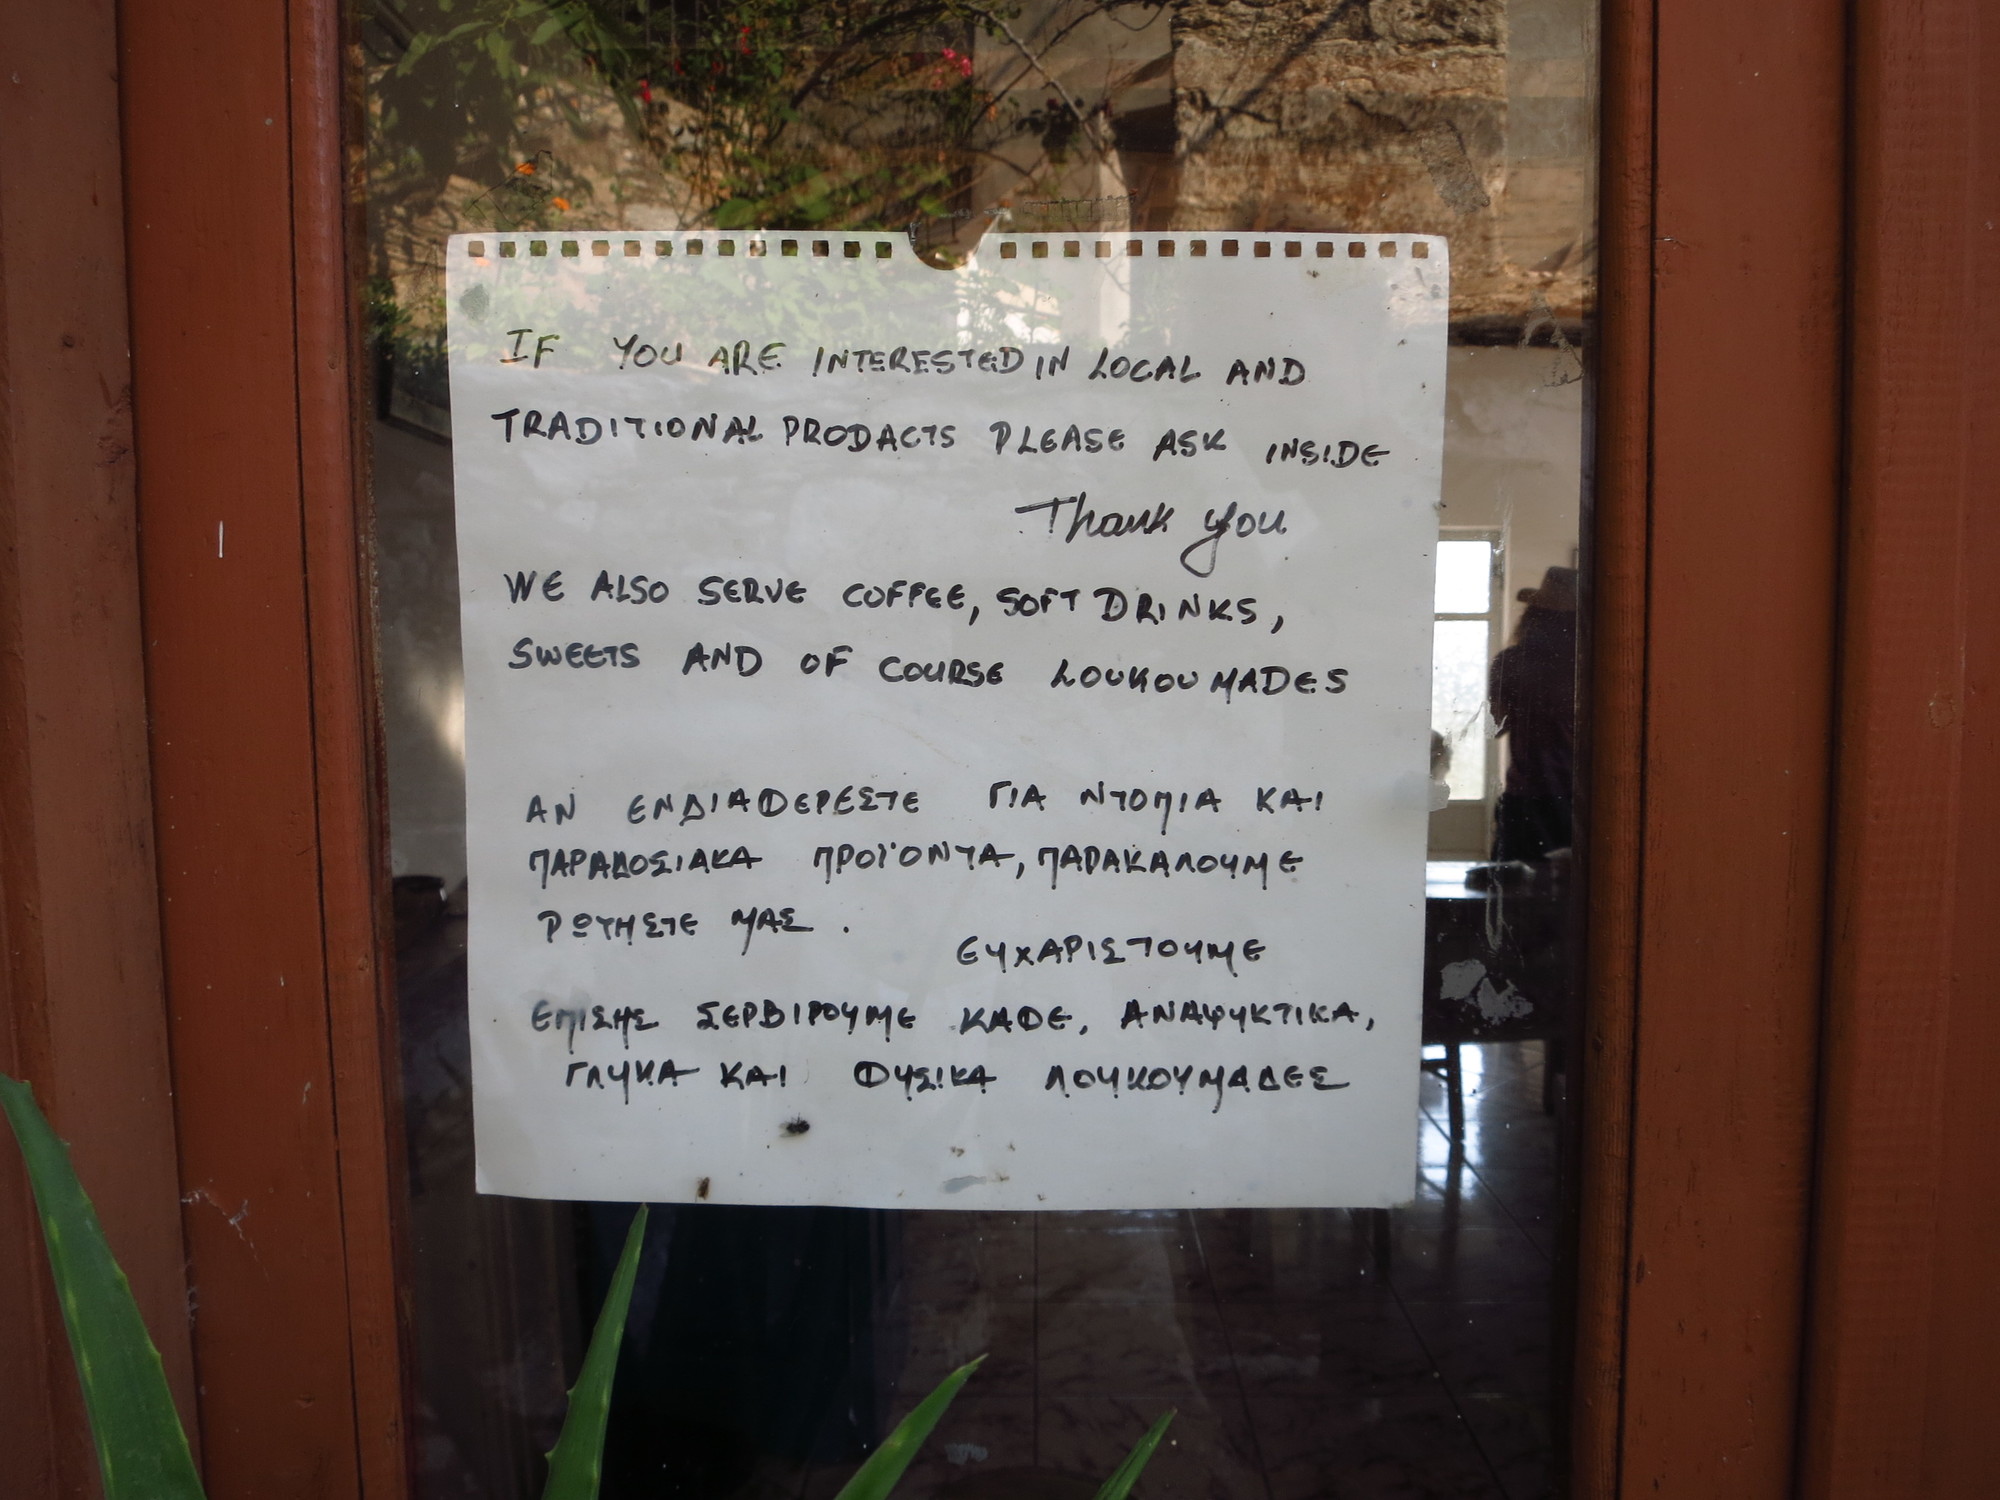 IF YOU ARE INTERESTED IN LOCAL AND
TRADITIONAL PRODACTS PLEASE ASK INSIDE
Thank you
WE ALSO SERVE COFFEE, SOFT DRINKS,
SWEETS AND OF COURSE LOUKOUMADES
ΑΝ ΕΝΔΙΑΦΕΡΕΣΤΕ ΓΙΑ ΝΤΟΠΙΑ ΚΑΙ
ΠΑΡΑΔΟΣΙΑΚΑ ΠΡΟΪΟΝΤΑ, ΠΑΡΑΚΑΛΟΥΜΕ
ΡΩΤΗΣΤΕ ΜΑΣ.
ΕΥΧΑΡΙΣΤΟΥΜΕ
ΕΠΙΣΗΣ ΣΕΡΒΙΡΟΥΜΕ ΚΑΦΕ, ΑΝΑΨΥΚΤΙΚΑ,
ΓΛΥΚΑ ΚΑΙ ΦΥΣΙΚΑ ΛΟΥΚΟΥΜΑΔΕΣ